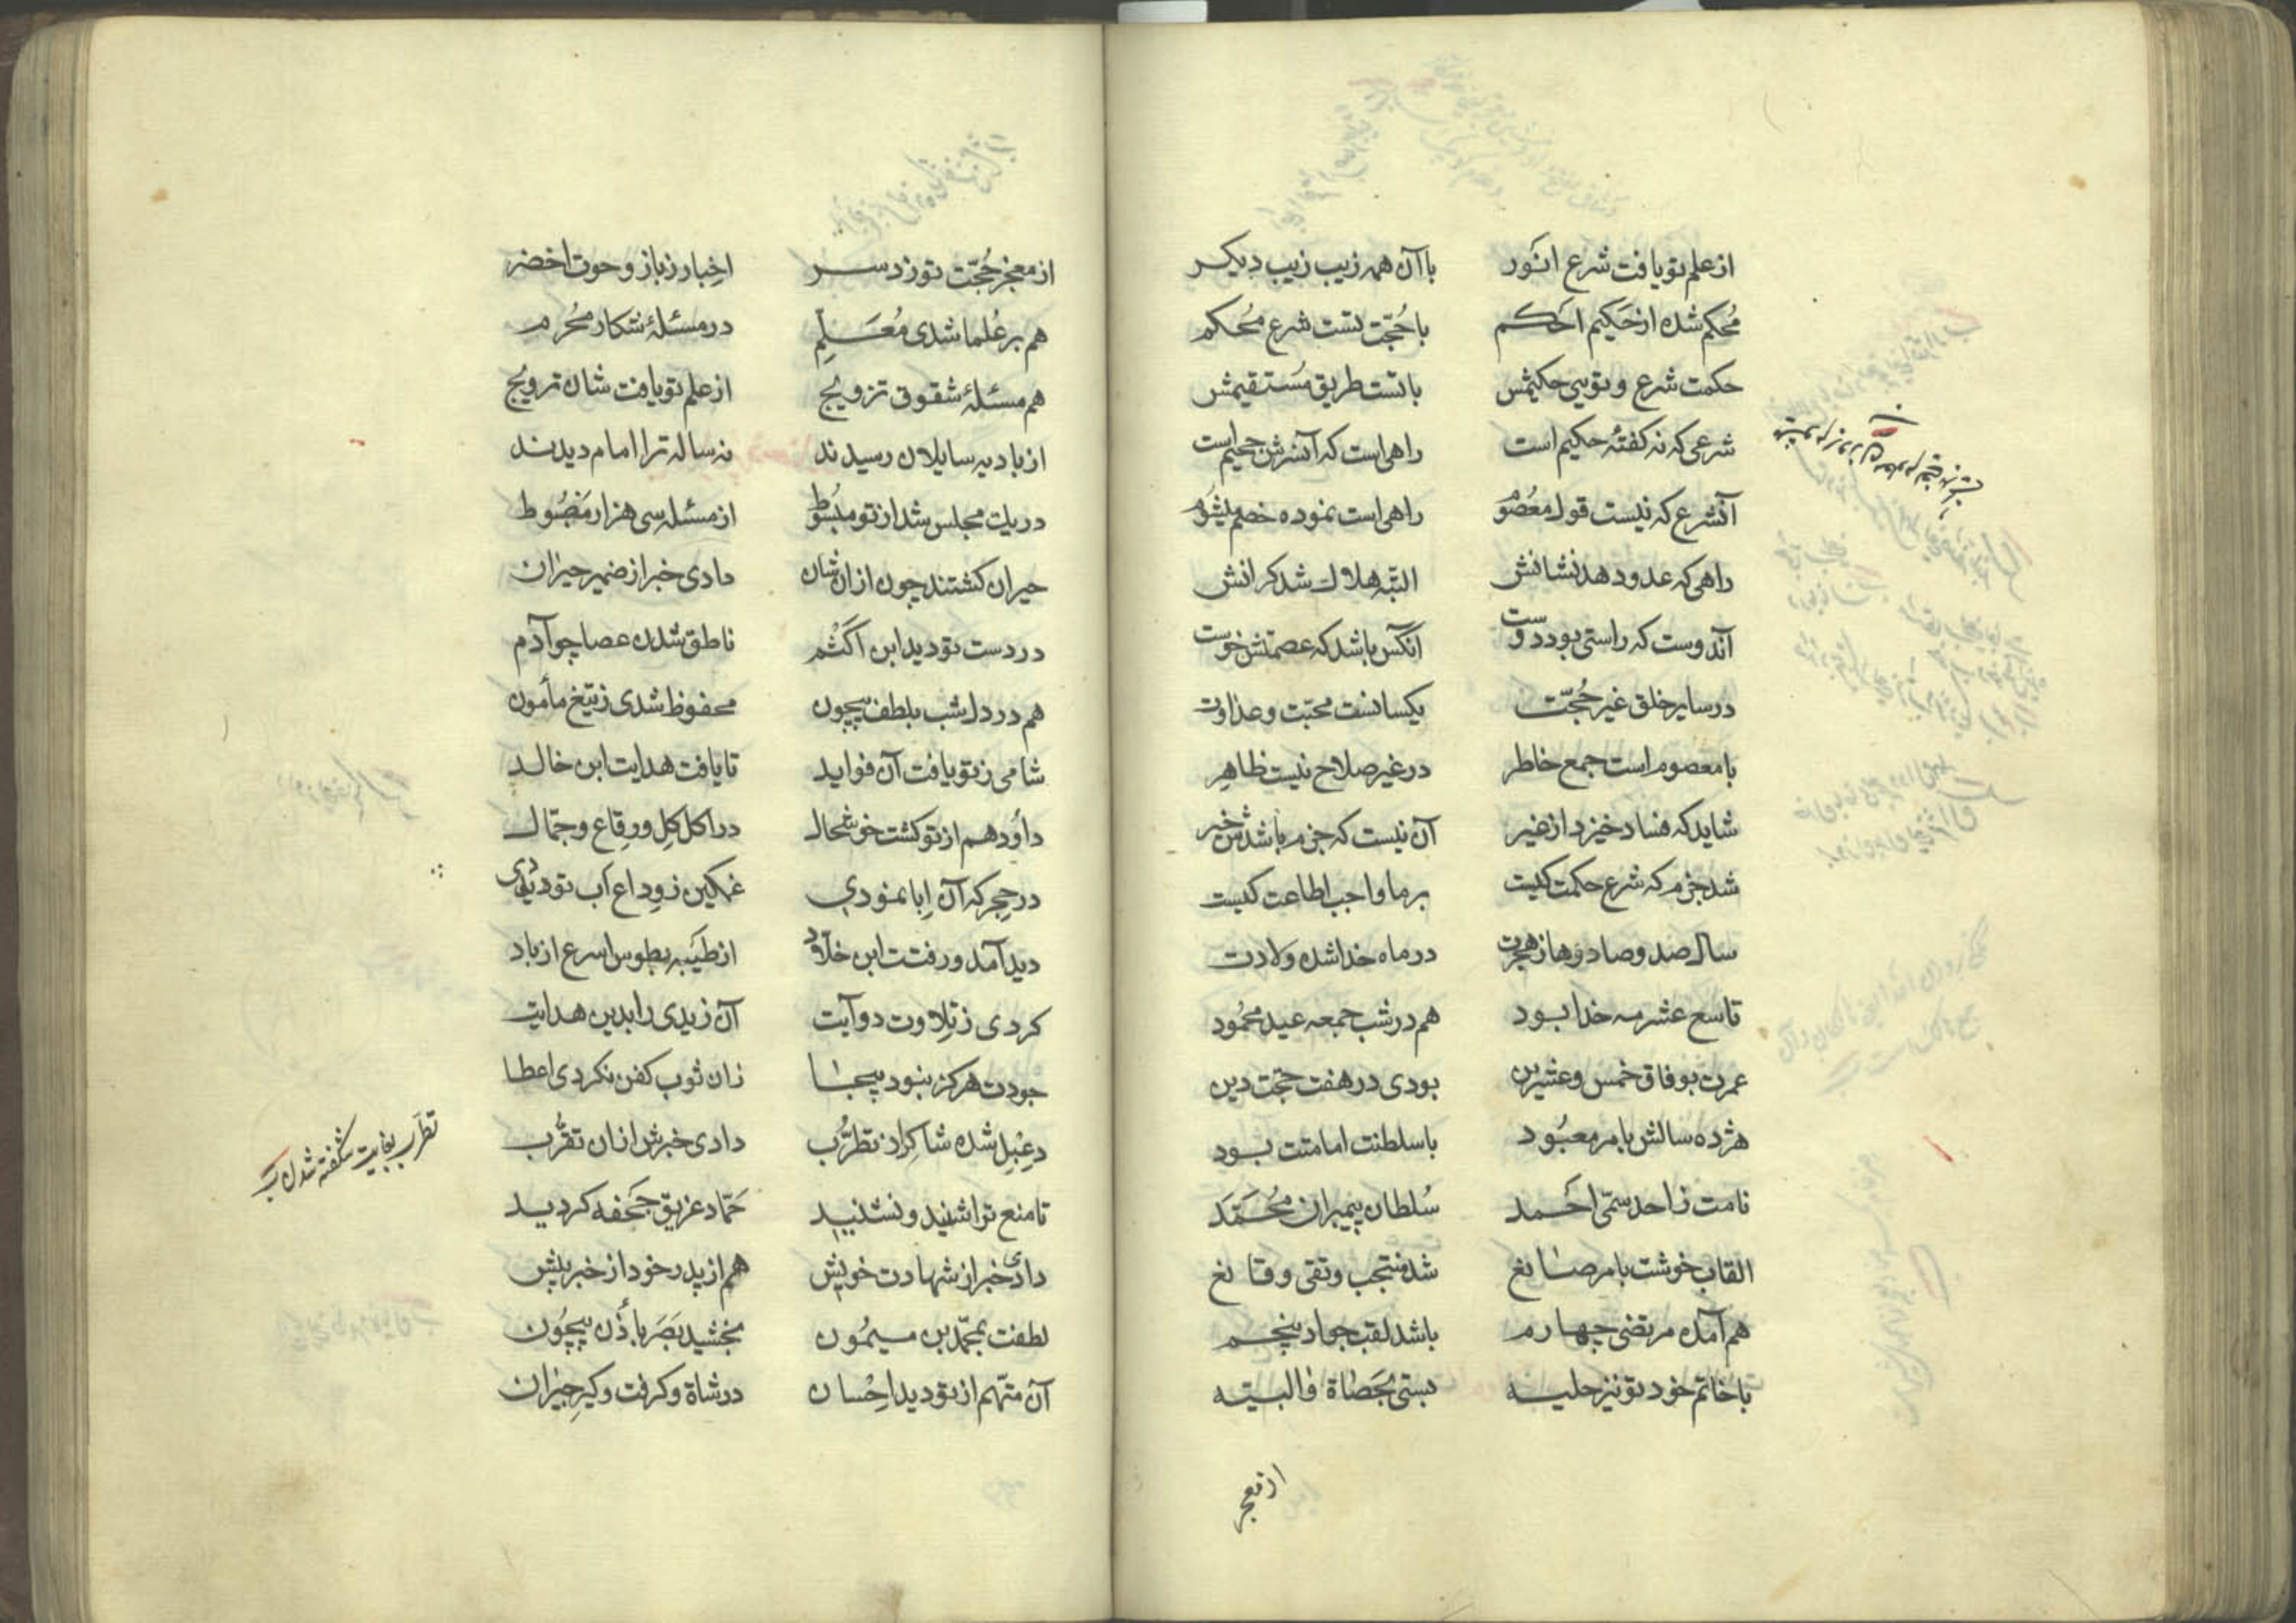 از علم تو یافت شرع انور با آن همه زیب زیب دیکر
محکم شده از حکیم احکم با حجّت تست شرع محکم
حکمت شرع و تویی حکیمش با تست طریق مستقیمش
شرعی که نه کفتهٔ حکیم است راهی است که آخرش جحیم است
آنشرع که نیست قول معصوم راهی است نموده خصم میشوم
راهی که عدو دهد نشانش البتّه هلاک شد کرانش
آندوست که راستی بود دوست آنکس باشد که عصمتش خوست
در سایر خلق غیر حُجّت یکسانست محبّت و عداوت
با معصوم است جمع خاطر در غیر صلاح نیست ظاهر
شاید که فساد خیزد از غیر آن نیست که جزم باشدش خیر
شد جزم که شرع حکمت کیست بر ما واجب اطاعت کیست
سال صد و صاد و ها ز هجرت در ماه خدا شده ولادت
تاسع عشر مه خدا بود هم در شب جمعه عید محمُود
عمرت بوفاق خمس و عشرین بودی در هفت حجّت دین
هژده سالش بامر معبُود با سلطنت امامتت بود
نامت ز احد سمّی احمد سُلطان پیمبران مُحَمَّد
القاب خوشت بامر صانع شد منتجب و تقی و قانع
هم آمده مرتضی چهارم باشد لقب جواد پنجم
با خاتم خود تو نیز حلیه بستی بحَصاة والبیّه
از معجز
از معجز حُجّت تو زد سر اخبار ز باز و حوت اخضر
هم بر عُلما شدی مُعَلِّم در مسئلهٔ شکار محُرم
هم مسئلهٔ شقوق تزویج از علم تو یافت شان ترویج
از بادیه سایلان رسیدند نه ساله ترا امام دیدند
در یک مجلس شد از تو مبسُوط از مسئله سی هزار مضبُوط
حیران کشتند چون از ان شان دادی خبر از ضمیر حیران
در دست تو دید ابن اکثم ناطق شدن عصا چو آدم
هم در دل شب بلطف بیچون محفوظ شدی ز تیغ مأمون
شامی ز تو یافت آن فواید تا یافت هدایت ابن خالد
داود هم از تو کشت خوشحال در اکل کل و رقاع و جمّال
در حِجر که آن اِبا نمودی غمکین ز وداع آب تو دیدی
دید آمد و رفتت ابن خلّاد از طَیبه بطوس اسرع از باد
کردی ز تلاوت دو آیت آن زیدی را بدین هدایت
جودت هرکز نبود بیجا زان ثوب کفن نکردی اعطا
دعبل شده شاکر از تطرُّب دادی خبرش از ان تقرُّب
تا منع ترا شنید و نشنید حَمّاد غریق جحفه کردید
دادی خبر از شهادت خویش هم از پدر خود از خبر پیش
لطفت بمحمّد بن میمُون بخشید بَصَر باذن بیچُون
آن متّهم از تو دید احسان در شاة و کرفت و کیر جیران
تطرّب بغایت شکفته شدن